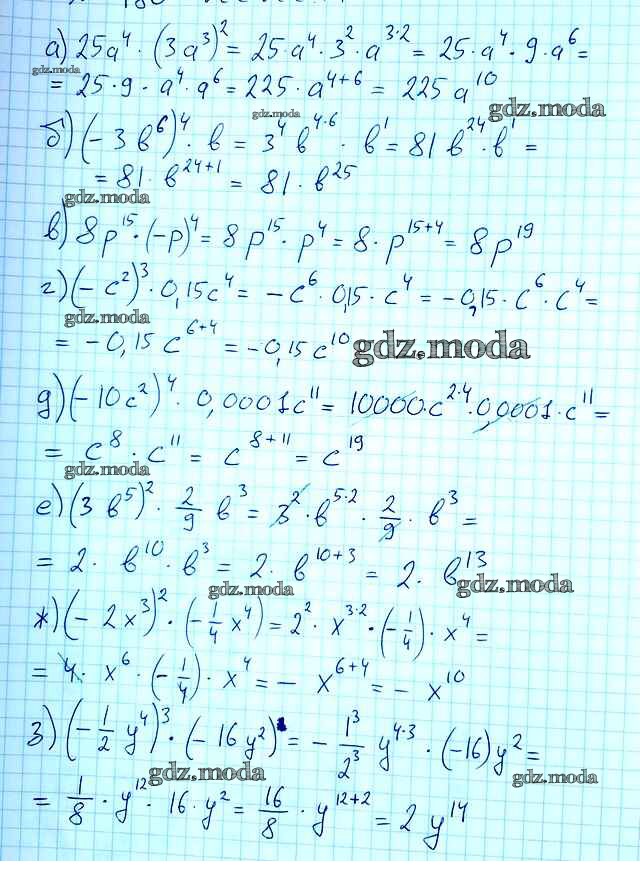 а) 25a⁴ · (3a³)² = 25 · a⁴ · 3² · a³·² = 25 · a⁴ · 9 · a⁶ =
gdz.moda
= 25 · 9 · a⁴ · a⁶ = 225 · a⁴⁺⁶ = 225 a¹⁰
gdz.moda
gdz.moda
б) (-3в⁶)⁴ · в = 3⁴ в⁴·⁶ · в¹ = 81 в²⁴ · в¹ =
= 81 · в²⁴⁺¹ = 81 · в²⁵
gdz.moda
в) 8p¹⁵ · (-p)⁴ = 8p¹⁵ · p⁴ = 8 · p¹⁵⁺⁴ = 8p¹⁹
г) (-c²)³ · 0,15c⁴ = -c⁶ · 0,15 · c⁴ = -0,15 · c⁶ · c⁴ =
gdz.moda
= -0,15 c⁶⁺⁴ = -0,15 c¹⁰
gdz.moda
д) (-10c²)⁴ · 0,0001c¹¹ = 10000 · c²·⁴ · 0,0001 · c¹¹ =
= c⁸ · c¹¹ = c⁸⁺¹¹ = c¹⁹
gdz.moda
е) (3в⁵)² · 2/9 в³ = 3² · в⁵·² · 2/9 · в³ =
= 2 · в¹⁰ · в³ = 2 · в¹⁰⁺³ = 2 · в¹³
gdz.moda
gdz.moda
ж) (-2x³)² · (-1/4 x⁴) = 2² · x³·² · (-1/4) · x⁴ =
= 4 · x⁶ · (-1/4) · x⁴ = - x⁶⁺⁴ = - x¹⁰
з) (-1/2 y⁴)³ · (-16y²) = - 1³/2³ y⁴·³ · (-16)y² =
gdz.moda
gdz.moda
= 1/8 · y¹² · 16 · y² = 16/8 · y¹²⁺² = 2 y¹⁴